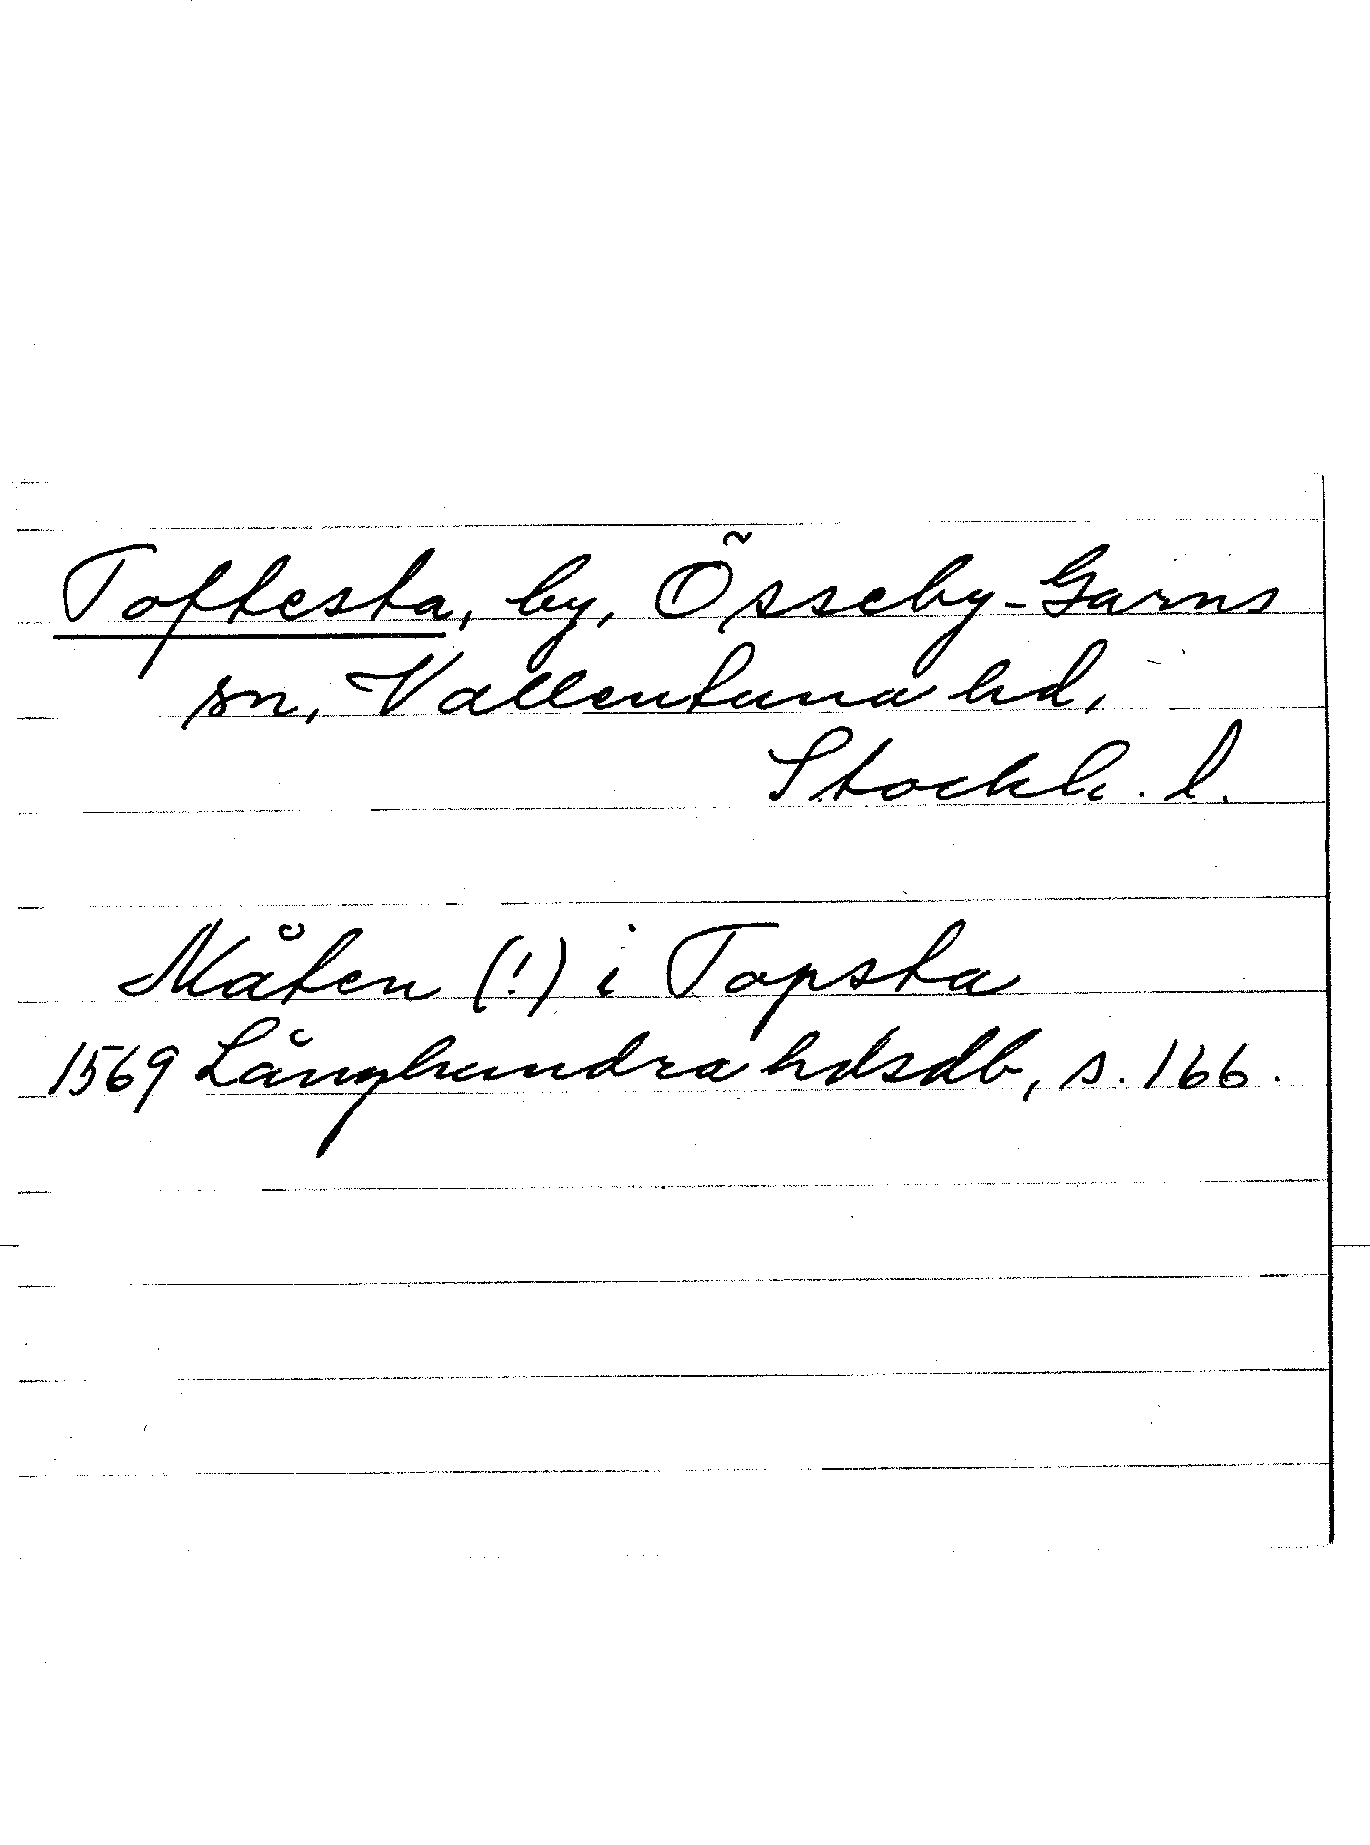 Toftesta, by, Össeby-Garns
sn, Vallentuna hd,
Stockh. l.
Måten (!) i Topsta
1569 Långhundra hdsdb, s. 166.